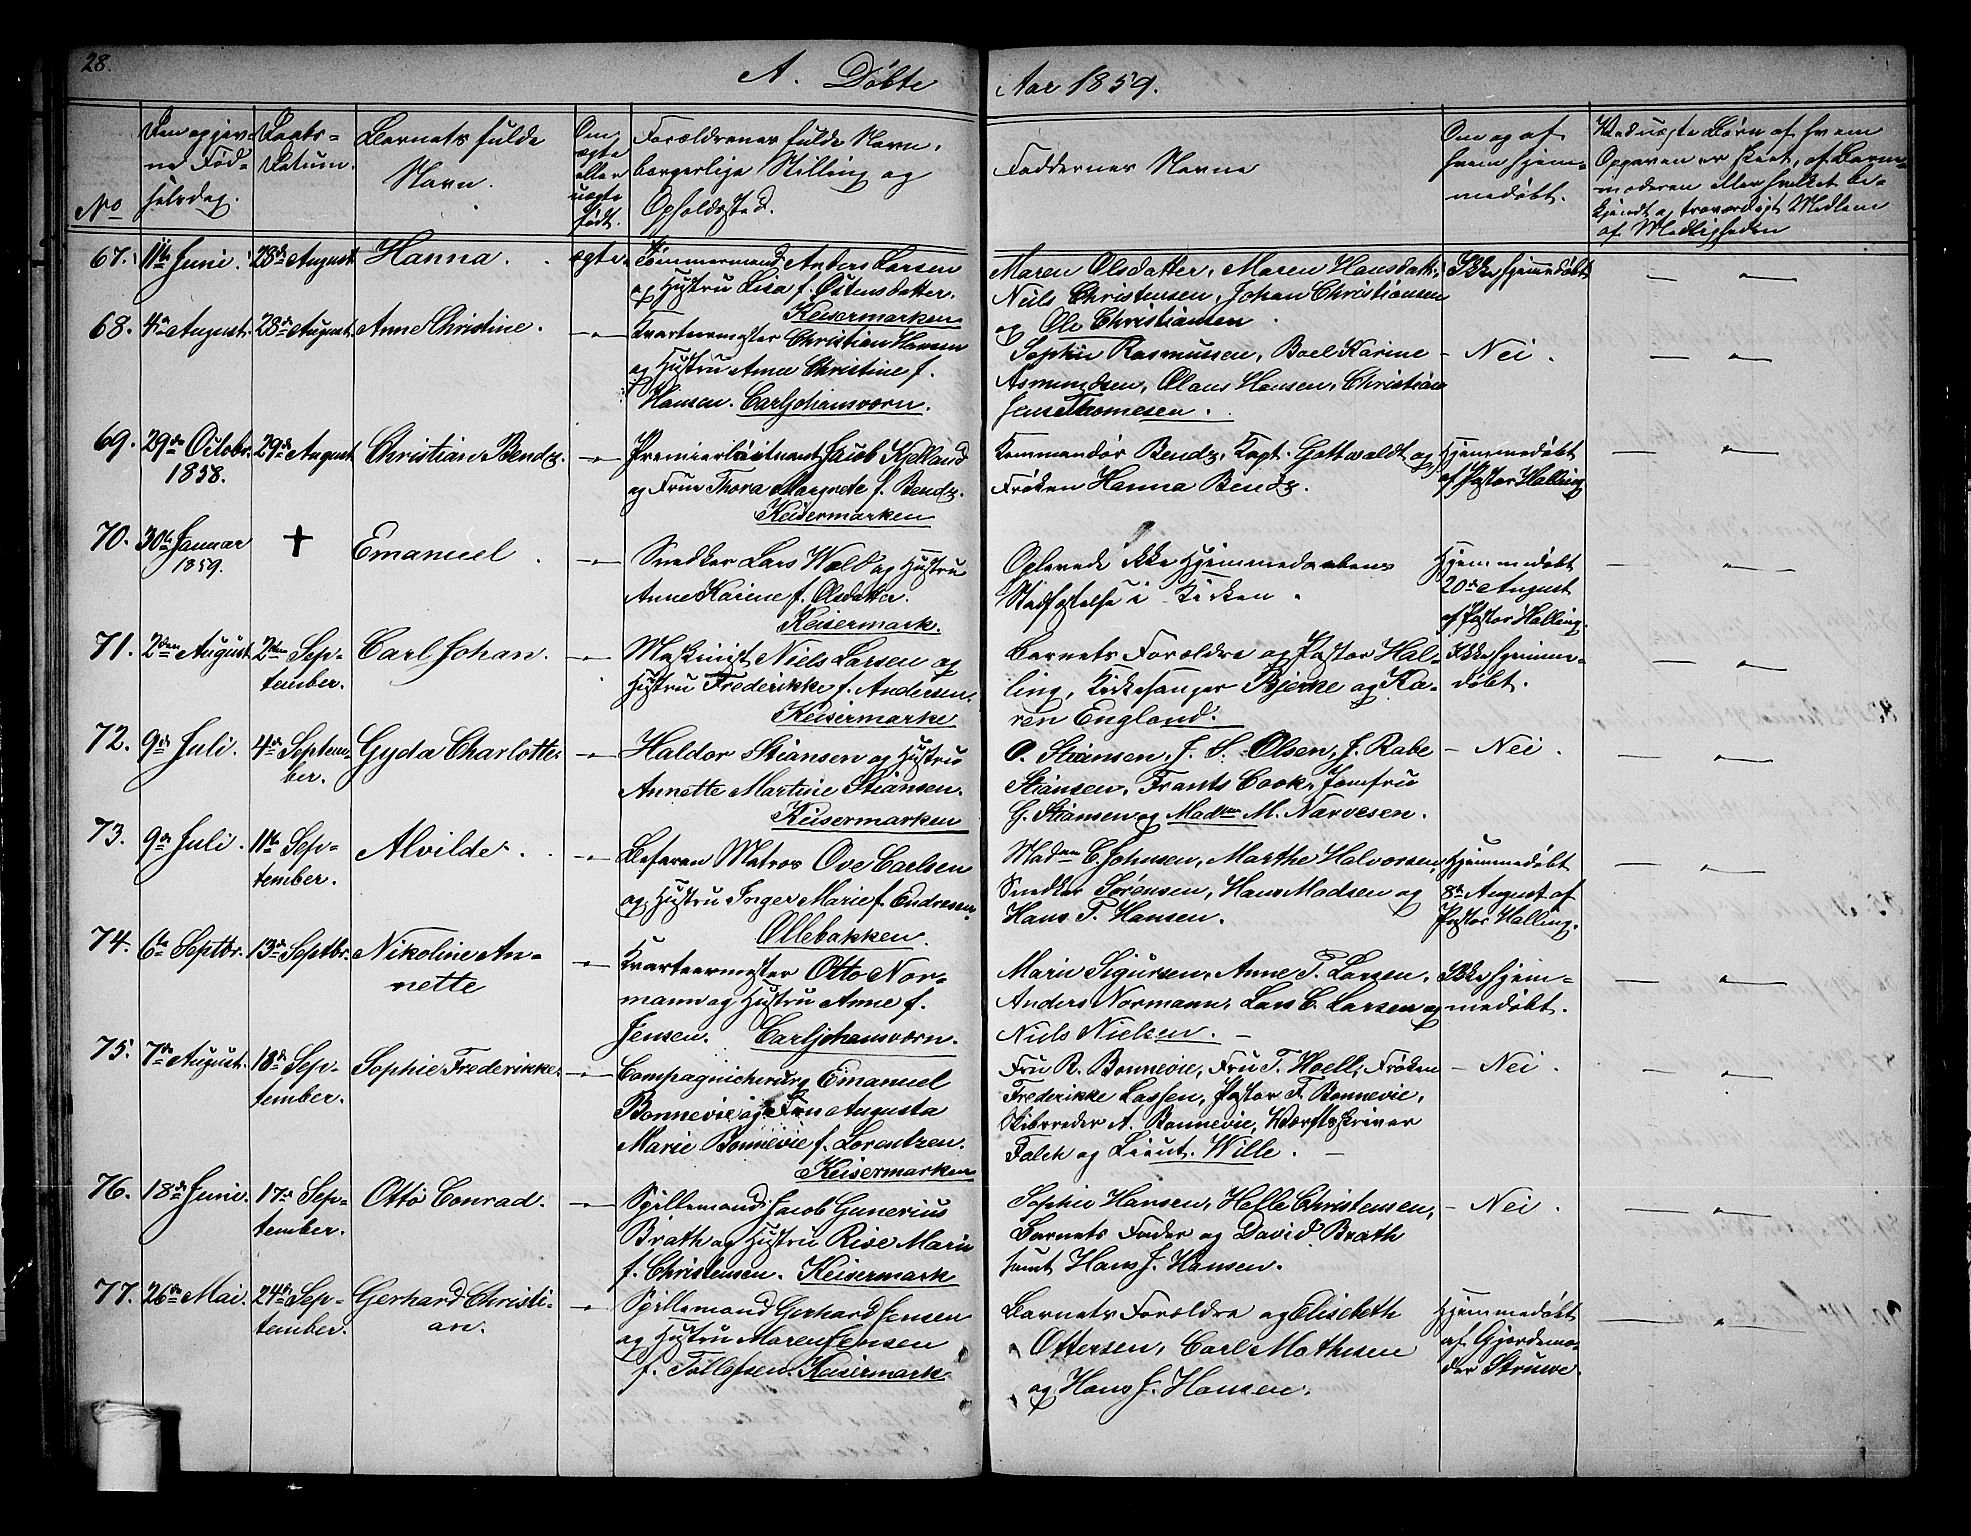 28.
A. Döbte
Aar 1859.
No
Den opgiv-
ne Föd-
selsdag.
Daabs-
Datum.
Barnets fulde
Navn.
Om
ægte
eller
uægte
födt.
Forældrenes fulde Navn,
borgerlige Stilling og
Opholdssted.
Faddernes Navne
Om og af
hvem hjem-
medöbt.
Ved uægte Börn af hvem
Opgaven er skeet, af Barne-
moderen eller hvilket be-
kjendt og troværdigt Medlem
af Menigheden
67. 11te Juni. 28de August Hanna. ægte. Tömmermand Anders Larsen
og Hustru Lisa f. Östensdatter.
Keisermarken
Maren Olsdatter, Maren Hansdatt.,
Niels Christensen, Johan Christiansen
og Ole Christiansen.
Ikke hjemmedöbt
68. 4de August. 28de August. Anne Christine.
Kvarteermester Christian Hansen
og Hustru Anne Christine f.
Hansen. Carljohansværn.
Sophie Rasmussen, Boel Karine
Asmundsen, Olaus Hansen, Christian
Jens Thomesen.
- Nei.
69. 29de Octobr.
1858.
29de August Christian Bendz.
Premierlöitnant Jacob Kjelland
og Frue Thora Margrete f. Bendz.
Keisermarken
Kommandör Bendz, Capt. Gottwaldt og
Fröken Hanna Bendz.
Hjemmedöbt
af Pastor Halling
70. 30te Januar
1859.
+
Emanuel.
Snedker Lars Wold og Hustru
Anne Karine f. Olsdatter.
Keisermark.
Oplevede ikke Hjemmedaabens
Stadfæstelse i Kirken.
Hjemmedöbt
20de August
af Pastor Halling.
71. 2den August 2den Sep-
tember.
Carl Johan.
Maskinist Niels Larsen og
Hustru Frederikke f. Andersen.
Keisermarke
Barnets Forældre og Pastor Hal-
ling, Kirkesanger Bjerke og Ka-
ren England.
Ikke hjemme-
döbt.
72. 9de Juli. 4de Septem-
ber.
Gyda Charlotte.
Haldor Stiansen og Hustru
Annette Martine Stiansen.
Keisermarken
O. Stiansen, J. S. Olsen, J. Rabe
Stiansen, Frants Cook, Jomfru
G. Stiansen og Madme M. Narvesen.
- Nei.
73. 9de Juli. 11te Sep-
tember.
Alvilde.
Befaren Matros Ove Carlsen
og Hustru Inger Marie f. Endresen
Ollebakken.
Madme C. Johnsen, Marthe Halvorsen,
Snedker Sörensen, Hans Madsen og
Hans T. Hansen.
Hjemmedöbt
8de August af
Pastor Halling.
74. 6te Septbr. 13de Septbr. Nikoline An-
nette
Kvarteermester Otto Nor-
mann og Hustru Anne f.
Jensen. Carljohansværn.
Marie Sigursen, Anne T. Larsen,
Anders Normann, Lars C. Larsen og
Niels Nielsen.
Ikke hjem-
medöbt.
75. 7de August. 18de Sep-
tember.
Sophie Frederikke.
Compagnichirurg Emanuel
Bonnevie og Frue Augusta
Marie Bonnevie f. Lorentzen.
Keisermarken
Fru R. Bonnevie, Fru T. Hoell, Fröken
Frederikke Lassen, Pastor F. Bonnevie,
Skibsreder A. Bonnevie, Værftsskriver
Falck og Lieut. Wille.
- Nei.
76. 18de Juni. 17de Sep-
tember.
Otto Conrad.
Spillemand Jacob Gunerius
Brath og Hustru Rise Marie
f. Christensen. Keisermark
Sophie Hansen, Helle Christensen,
Barnets Fader og David Brath
samt Hans J. Hansen.
- Nei.
77. 26de Mai. 24de Sep-
tember.
Gerhard Christi-
an.
Spillemand Gerhard Jensen
og Hustru Maren Jensen
f. Tollefsen. Keisermark
Barnets Forældre og Elisebeth
Ottersen, Carl Mathesen
og Hans J. Hansen.
Hjemmedöbt
af Gjordemo-
der Struwe.